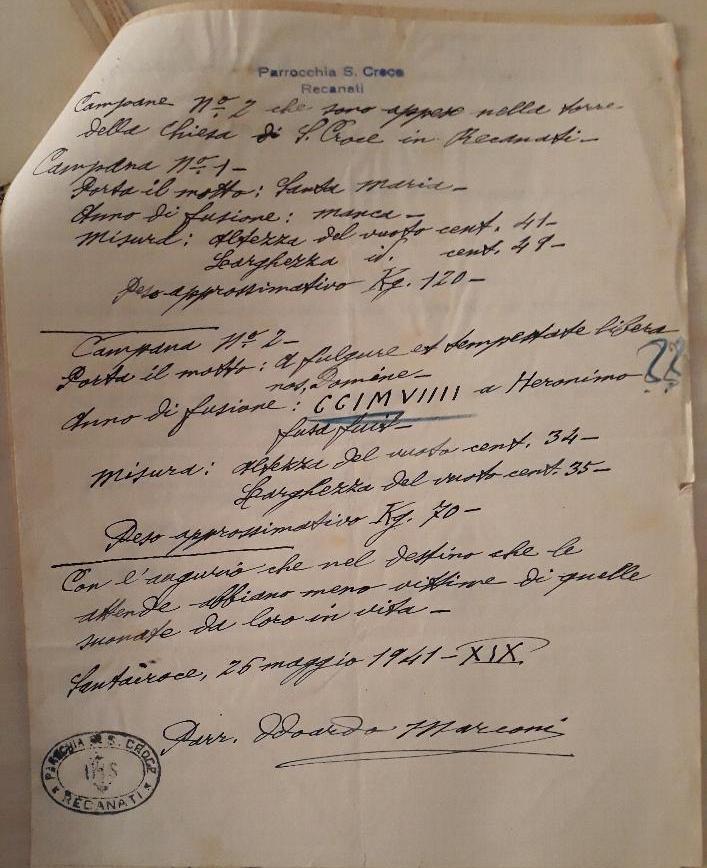 Parrocchia S. Croce
Recanati
Campane Nº 2 che sono appese nella torre
della Chiesa di S. Croce in Recanati -
Campana Nº 1 -
Porta il motto: Santa Maria -
Anno di fusione: manca -
Misura: Altezza del vuoto cent. 41 -
Larghezza id. cent. 49 -
Peso approssimativo Kg. 120 -
Campana Nº 2 -
Porta il motto: A fulgure et tempestate libera
nos, Domine -
Anno di fusione: CCIMVIIII a Heronimo ??
fusa fuit -
Misura: Altezza del vuoto cent. 34 -
Larghezza del vuoto cent. 35 -
Peso approssimativo Kg. 70 -
Con l'augurio che nel destino che le
attende abbiano meno vittime di quelle
suonate da loro in vita -
Santacroce, 26 maggio 1941 - XIX.
Parr. Odoardo Marconi
PAROCHIA DI S. CROCE
IHS
RECANATI